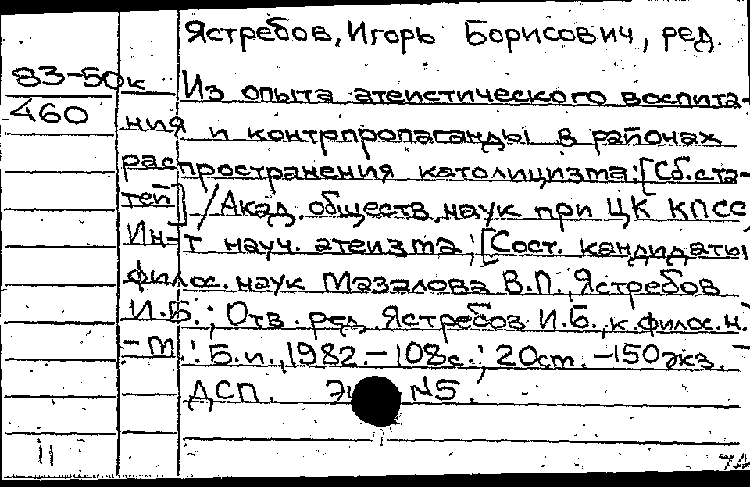 Ястребов, Игорь Борисович, ред.
83-50к
460
Из опыта атеистического воспита-
ния и контрпропаганды в районах
распространения католицизма: [Сб. ста-
тей] / Акад. обществ. наук при ЦК КПСС,
Ин-т науч. атеизма; [Сост. кандидаты
филос. наук Мазалова В.П., Ястребов
И.Б.; Отв. ред. Ястребов И.Б., к.филос.н.
- М.: Б.и., 1982. - 108с.; 20cm. - 150экз. -
ДСП. N5.
11